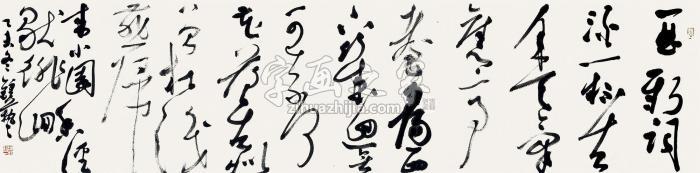 一曲新词
酒一杯去
年天气
旧亭
台夕阳西
下几时回无
可奈何
花落去似
曾相识
燕归
来小园香径
独徘徊
字画之家
zihuazhijia.com